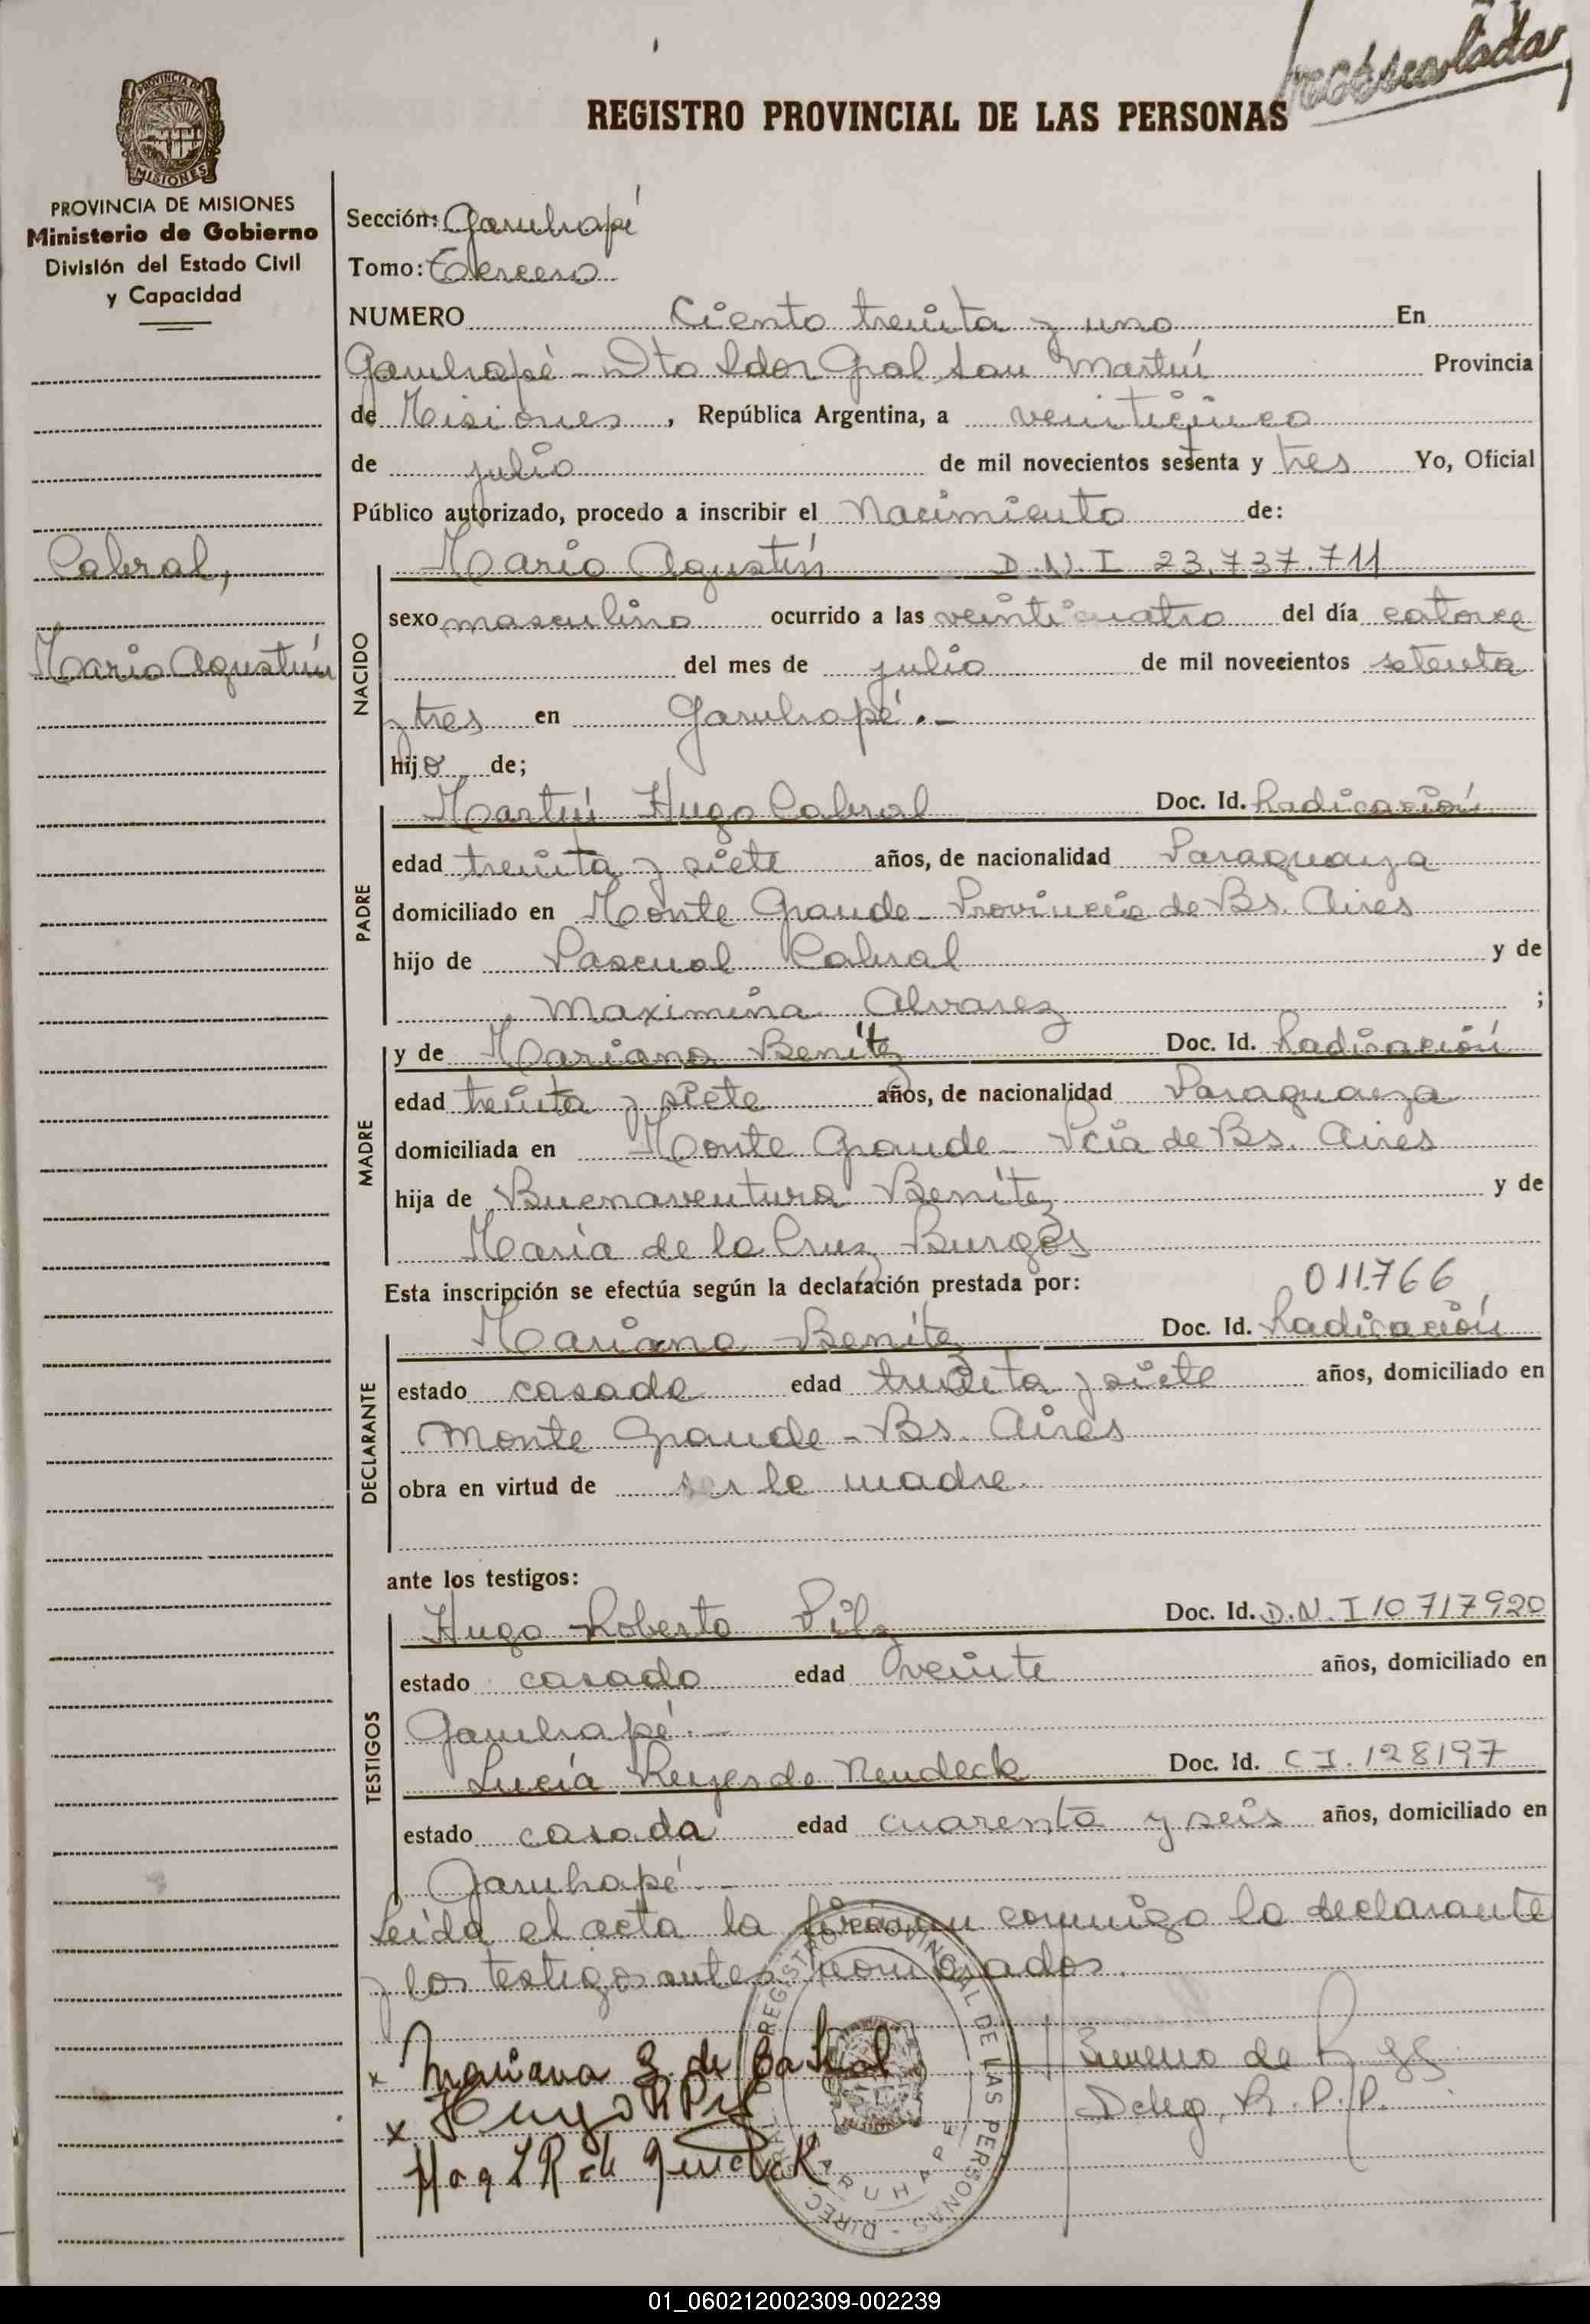 REGISTRO PROVINCIAL DE LAS PERSONAS
PROVINCIA DE
MISIONES
PROVINCIA DE MISIONES
Ministerio de Gobierno
División del Estado Civil
y Capacidad
Cabral,
Mario Agustín
Sección: Garuhapé
Tomo: Tercero
NUMERO Ciento treinta y uno En
Garuhapé - Dto Ldor Gral San Martín Provincia
de Misiones, República Argentina, a veinticinco
de julio de mil novecientos setenta y tres Yo, Oficial
Público autorizado, procedo a inscribir el Nacimiento de:
NACIDO
Mario Agustín D.N.I 23.737.711
sexo masculino ocurrido a las veinticuatro del día catorce
del mes de julio de mil novecientos setenta
y tres en Garuhapé.-
hijo de;
PADRE
Martín Hugo Cabral Doc. Id. Radicación
edad treinta y siete años, de nacionalidad Paraguaya
domiciliado en Monte Grande - Provincia de Bs. Aires
hijo de Pascual Cabral y de
Maximina Alvarez ;
MADRE
y de Mariana Benítez Doc. Id. Radicación
edad treinta y siete años, de nacionalidad Paraguaya
domiciliada en Monte Grande - Pcia de Bs. Aires
hija de Buenaventura Benítez y de
María de la Cruz Burgos
Esta inscripción se efectúa según la declaración prestada por: 011.766
DECLARANTE
Mariana Benítez Doc. Id. Radicación
estado casada edad treinta y siete años, domiciliado en
Monte Grande - Bs. Aires
obra en virtud de ser la madre.
ante los testigos:
TESTIGOS
Hugo Roberto Pilz Doc. Id. D.N.I 10717920
estado casado edad veinte años, domiciliado en
Garuhapé.-
Lucía Reyes de Neudeck Doc. Id. C I. 128197
estado casada edad cuarenta y seis años, domiciliado en
Garuhapé.-
Leída el acta la firman conmigo la declarante
y los testigos antes nombrados.
x Mariana B de Cabral
x Hugo R Pilz
L R de
Deleg. R. P. P.
REGISTRO PROVINCIAL DE LAS PERSONAS - DIREC
GARUHAPE
01_060212002309-002239